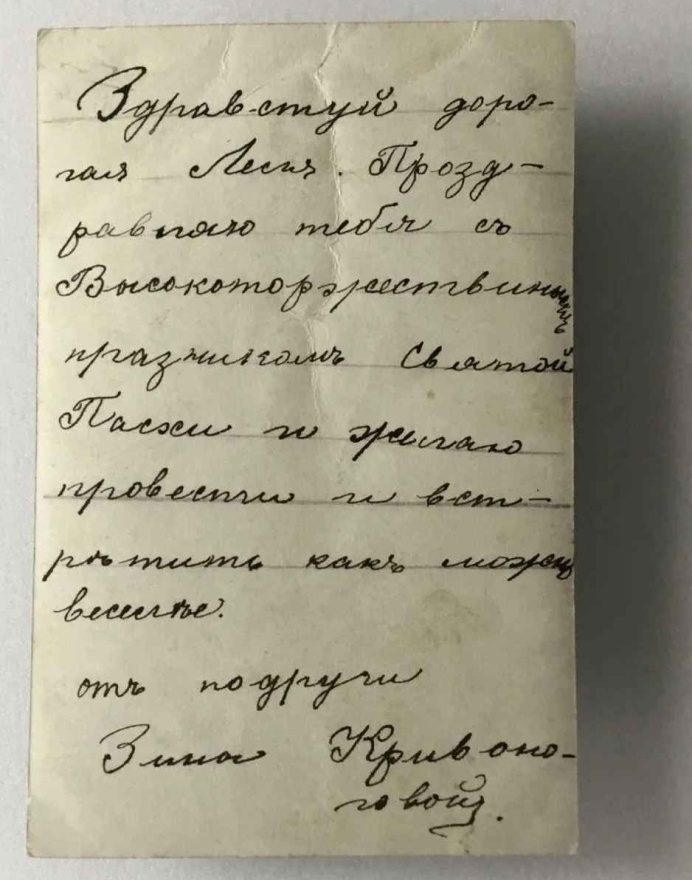 Здравствуй доро-
гая Леся. Позд-
равляю тебя съ
Высокоторжествинымъ
празникомъ Святой
Пасхи и желаю
провести и вст-
рѣтить какъ можно
веселѣе.
отъ подруги
Зина Кривоно-
говой.